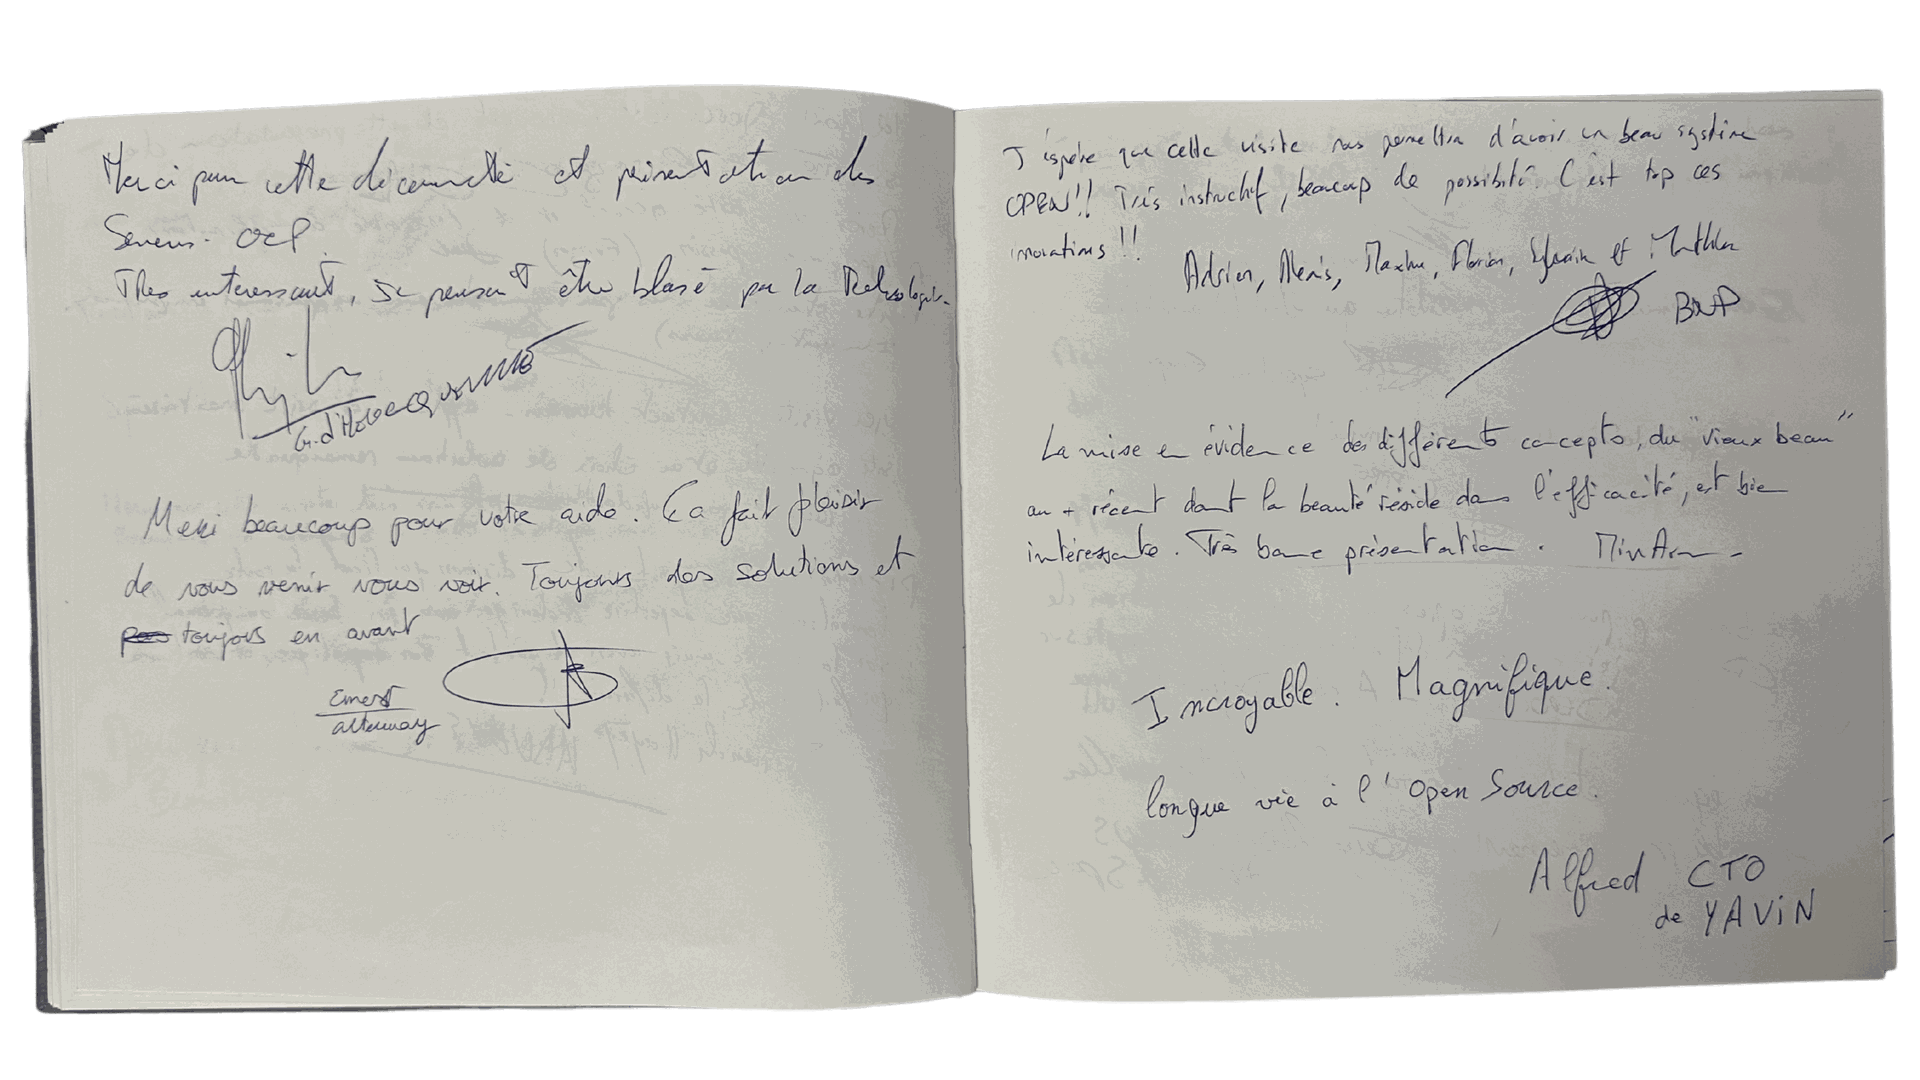 Merci pour cette découverte et présentation des
Serveurs OCP.
Très interessant, je pensait être blasé par la Technologie.
G. d'
Merci beaucoup pour votre aide. Ca fait plaisir
de vous venir vous voir. Toujours des solutions et
toujors en avant
Ernest
alterway
J'éspère que cette visite nous permettra d'avoir un beau système
OPEN!! Très instructif, beaucoup de possibilité. C'est top ces
inovations !!
Adrien, Alexis, Maxime, Florian, Sylvain et Matthieu
BNP
La mise en évidence des différents concepts, du "vieux beau"
au + récent dont la beauté réside dans l'efficacité, est bien
intéressante. Très bonne présentation. MinArm
Incroyable. Magnifique.
longue vie à l'Open Source.
Alfred CTO
de YAViN